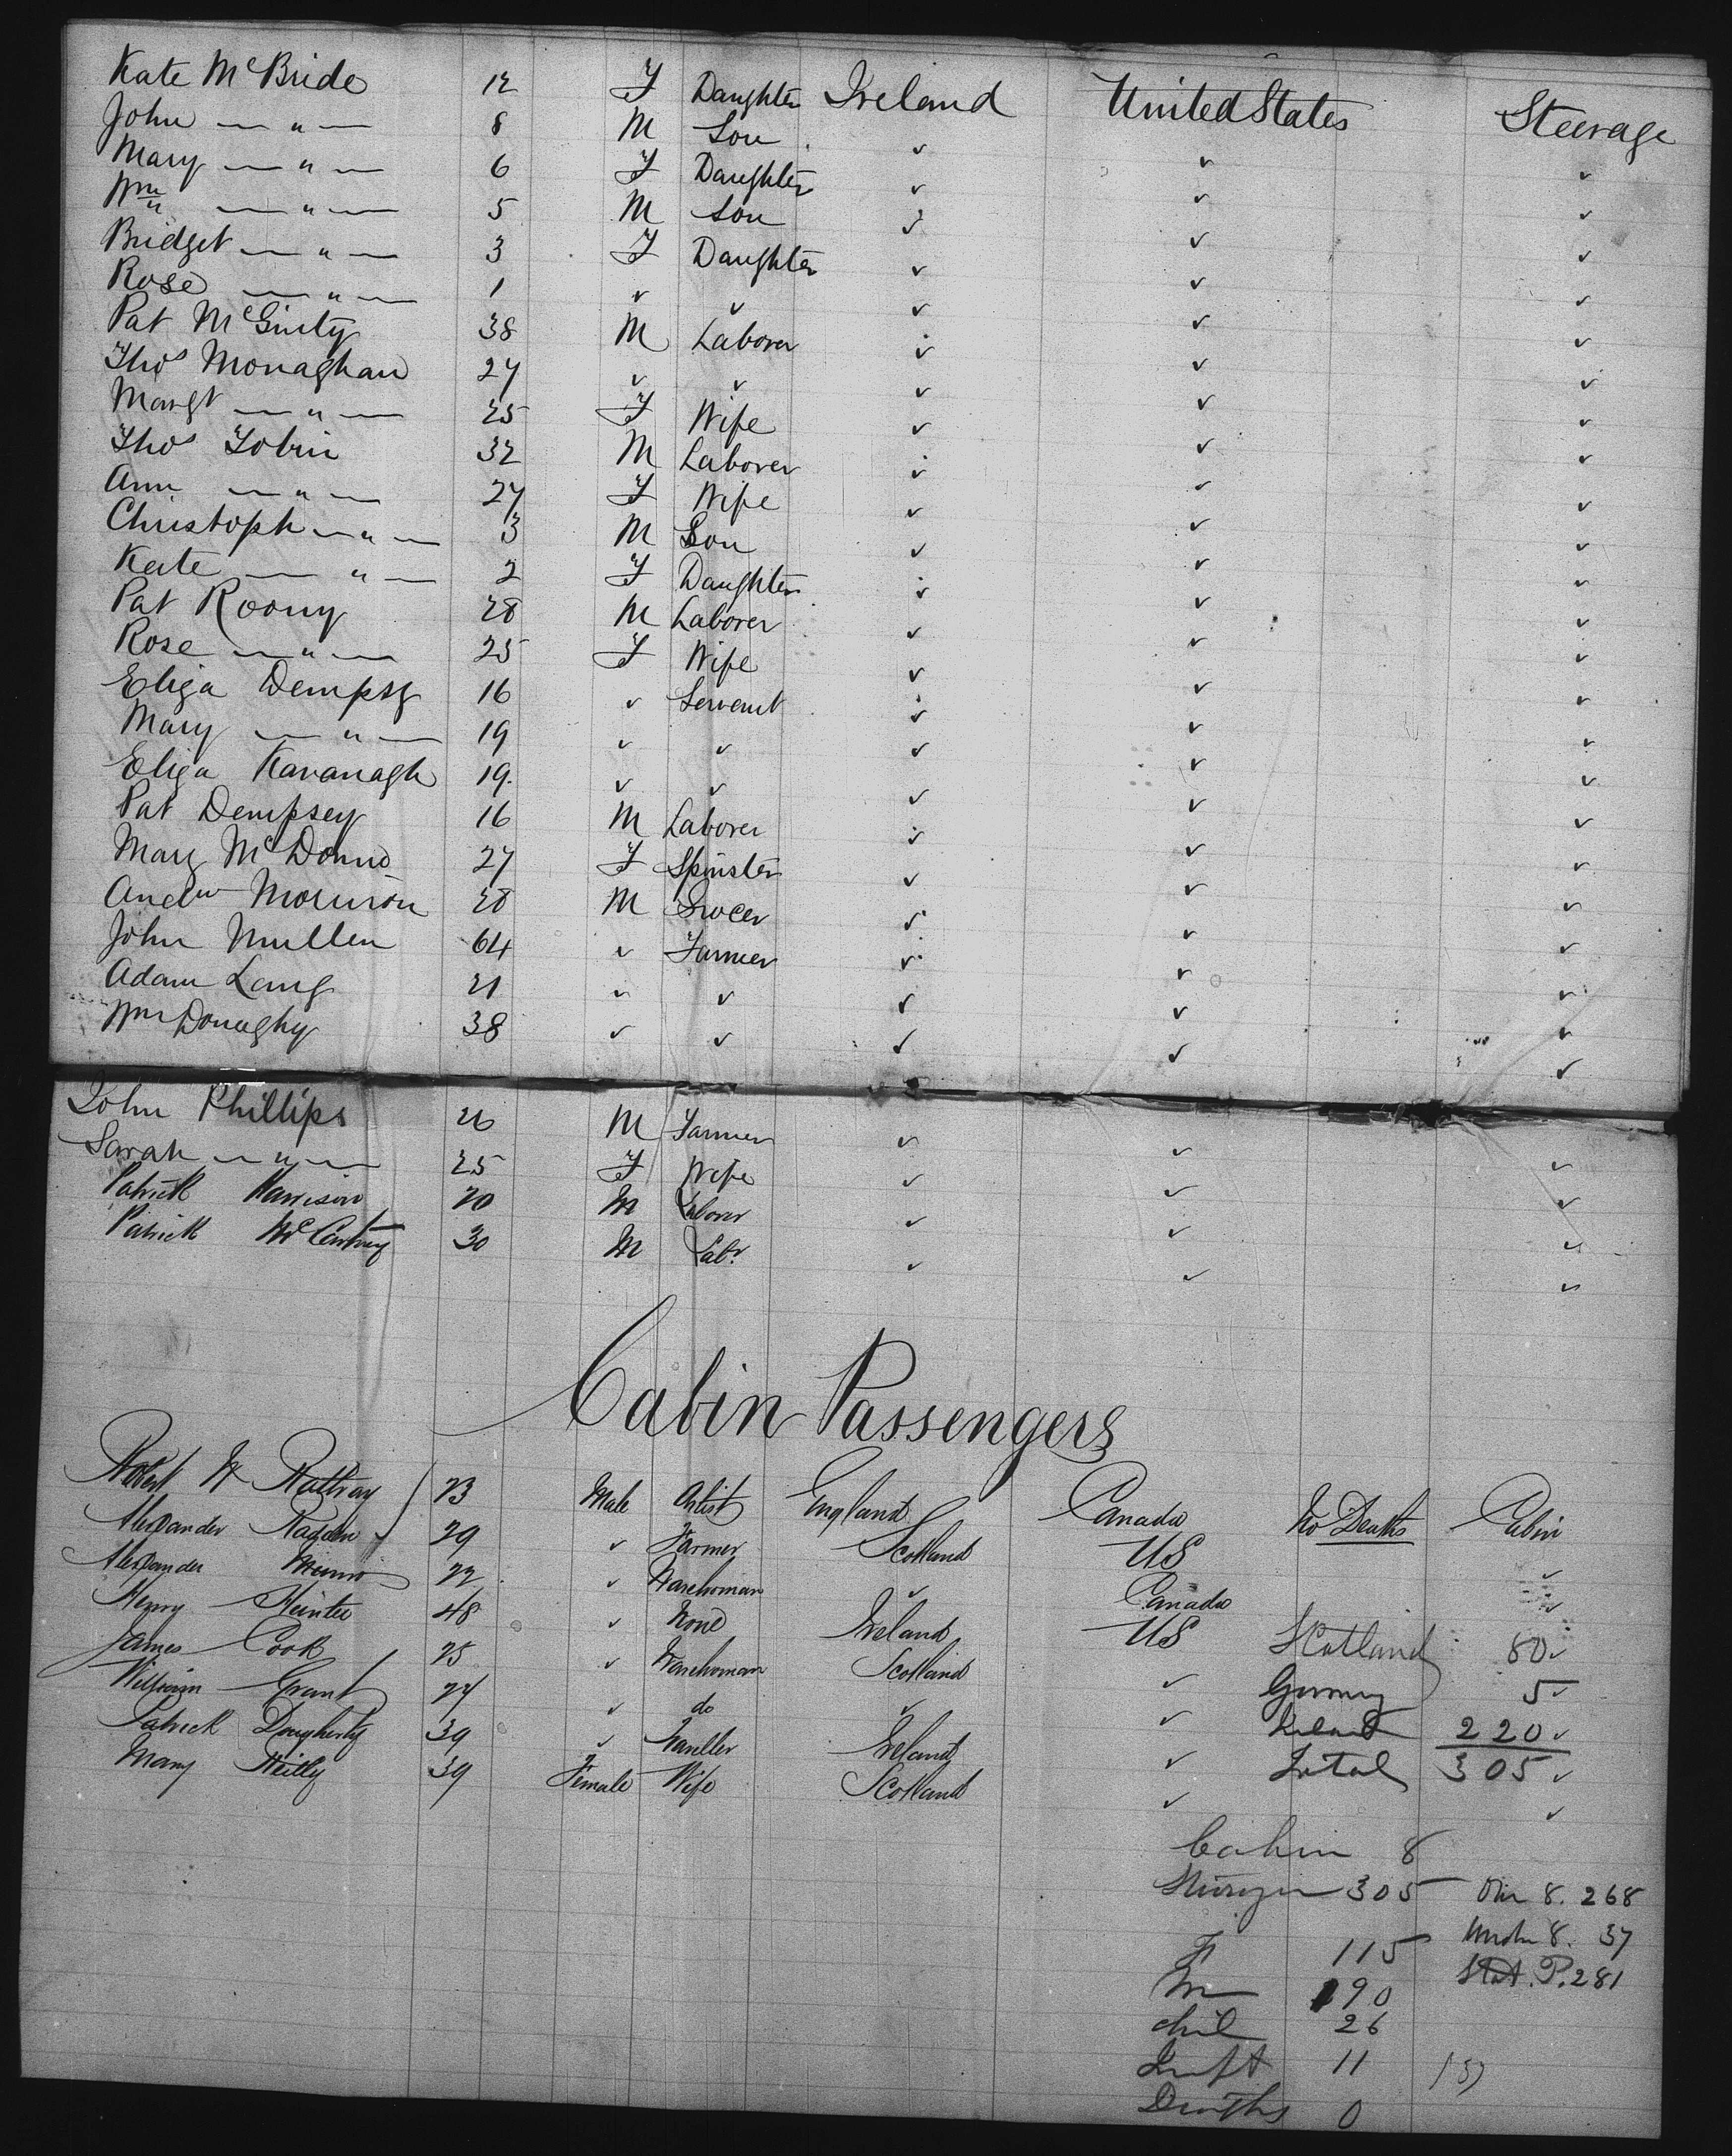 Kate McBride 12 F Daughter Ireland United States Steerage
John — " — 8 M Son ✓ ✓ ✓
Mary — " — 6 F Daughter ✓ ✓ ✓
Wm — " — 5 M Son ✓ ✓ ✓
Bridget — " — 3 F Daughter ✓ ✓ ✓
Rose — " — 1 ✓ ✓ ✓ ✓ ✓
Pat McGinty 38 M Laborer ✓ ✓ ✓
Thos Monaghan 27 ✓ ✓ ✓ ✓ ✓
Margt — " — 25 F Wife ✓ ✓ ✓
Thos Tobin 32 M Laborer ✓ ✓ ✓
Ann — " — 27 F Wife ✓ ✓ ✓
Christoph — " — 3 M Son ✓ ✓ ✓
Kate — " — 2 F Daughter ✓ ✓ ✓
Pat Roony 28 M Laborer ✓ ✓ ✓
Rose — " — 25 F Wife ✓ ✓ ✓
Eliza Dempsy 16 ✓ Servant ✓ ✓ ✓
Mary — " — 19 ✓ ✓ ✓ ✓ ✓
Eliza Kavanagh 19. ✓ ✓ ✓ ✓ ✓
Pat Dempsey 16 M Laborer ✓ ✓ ✓
Mary McDonno 27 F Spinster ✓ ✓ ✓
Andw Morrison 28 M Grocer ✓ ✓ ✓
John Mullen 64 ✓ Farmer ✓ ✓ ✓
Adam Lang 21 ✓ ✓ ✓ ✓ ✓
Wm Donaghy 38 ✓ ✓ ✓ ✓ ✓
John Phillips 26 M Farmer ✓ ✓ ✓
Sarah — " — 25 F Wife ✓ ✓ ✓
Patrick Harrison 20 M Laborer ✓ ✓ ✓
Patrick McCartney 30 M Labr. ✓ ✓ ✓
Cabin Passengers
Robert W Rattray 23 Male Artist England Canada No Deaths Cabin
Alexander 29 ✓ Farmer Scotland US ✓
Alexander Munro 22 ✓ Warehoman ✓ Canada ✓
Henry Hunter 48 ✓ None Ireland US Scotland 80 ✓
James Cook 25 ✓ Warehoman Scotland ✓ Germany 5 ✓
William Grant 24 ✓ do ✓ ✓ Ireland 220 ✓
Patrick Dougherty 39 ✓ Ireland ✓ Total 305 ✓
Mary Reilly 39 Female Wife Scotland ✓ ✓
Cabin 8
Steerage 305 Over 8. 268
F 115 Under 8. 37
M 190 Stat. P. 281
chil 26
Inft 11
Deaths 0